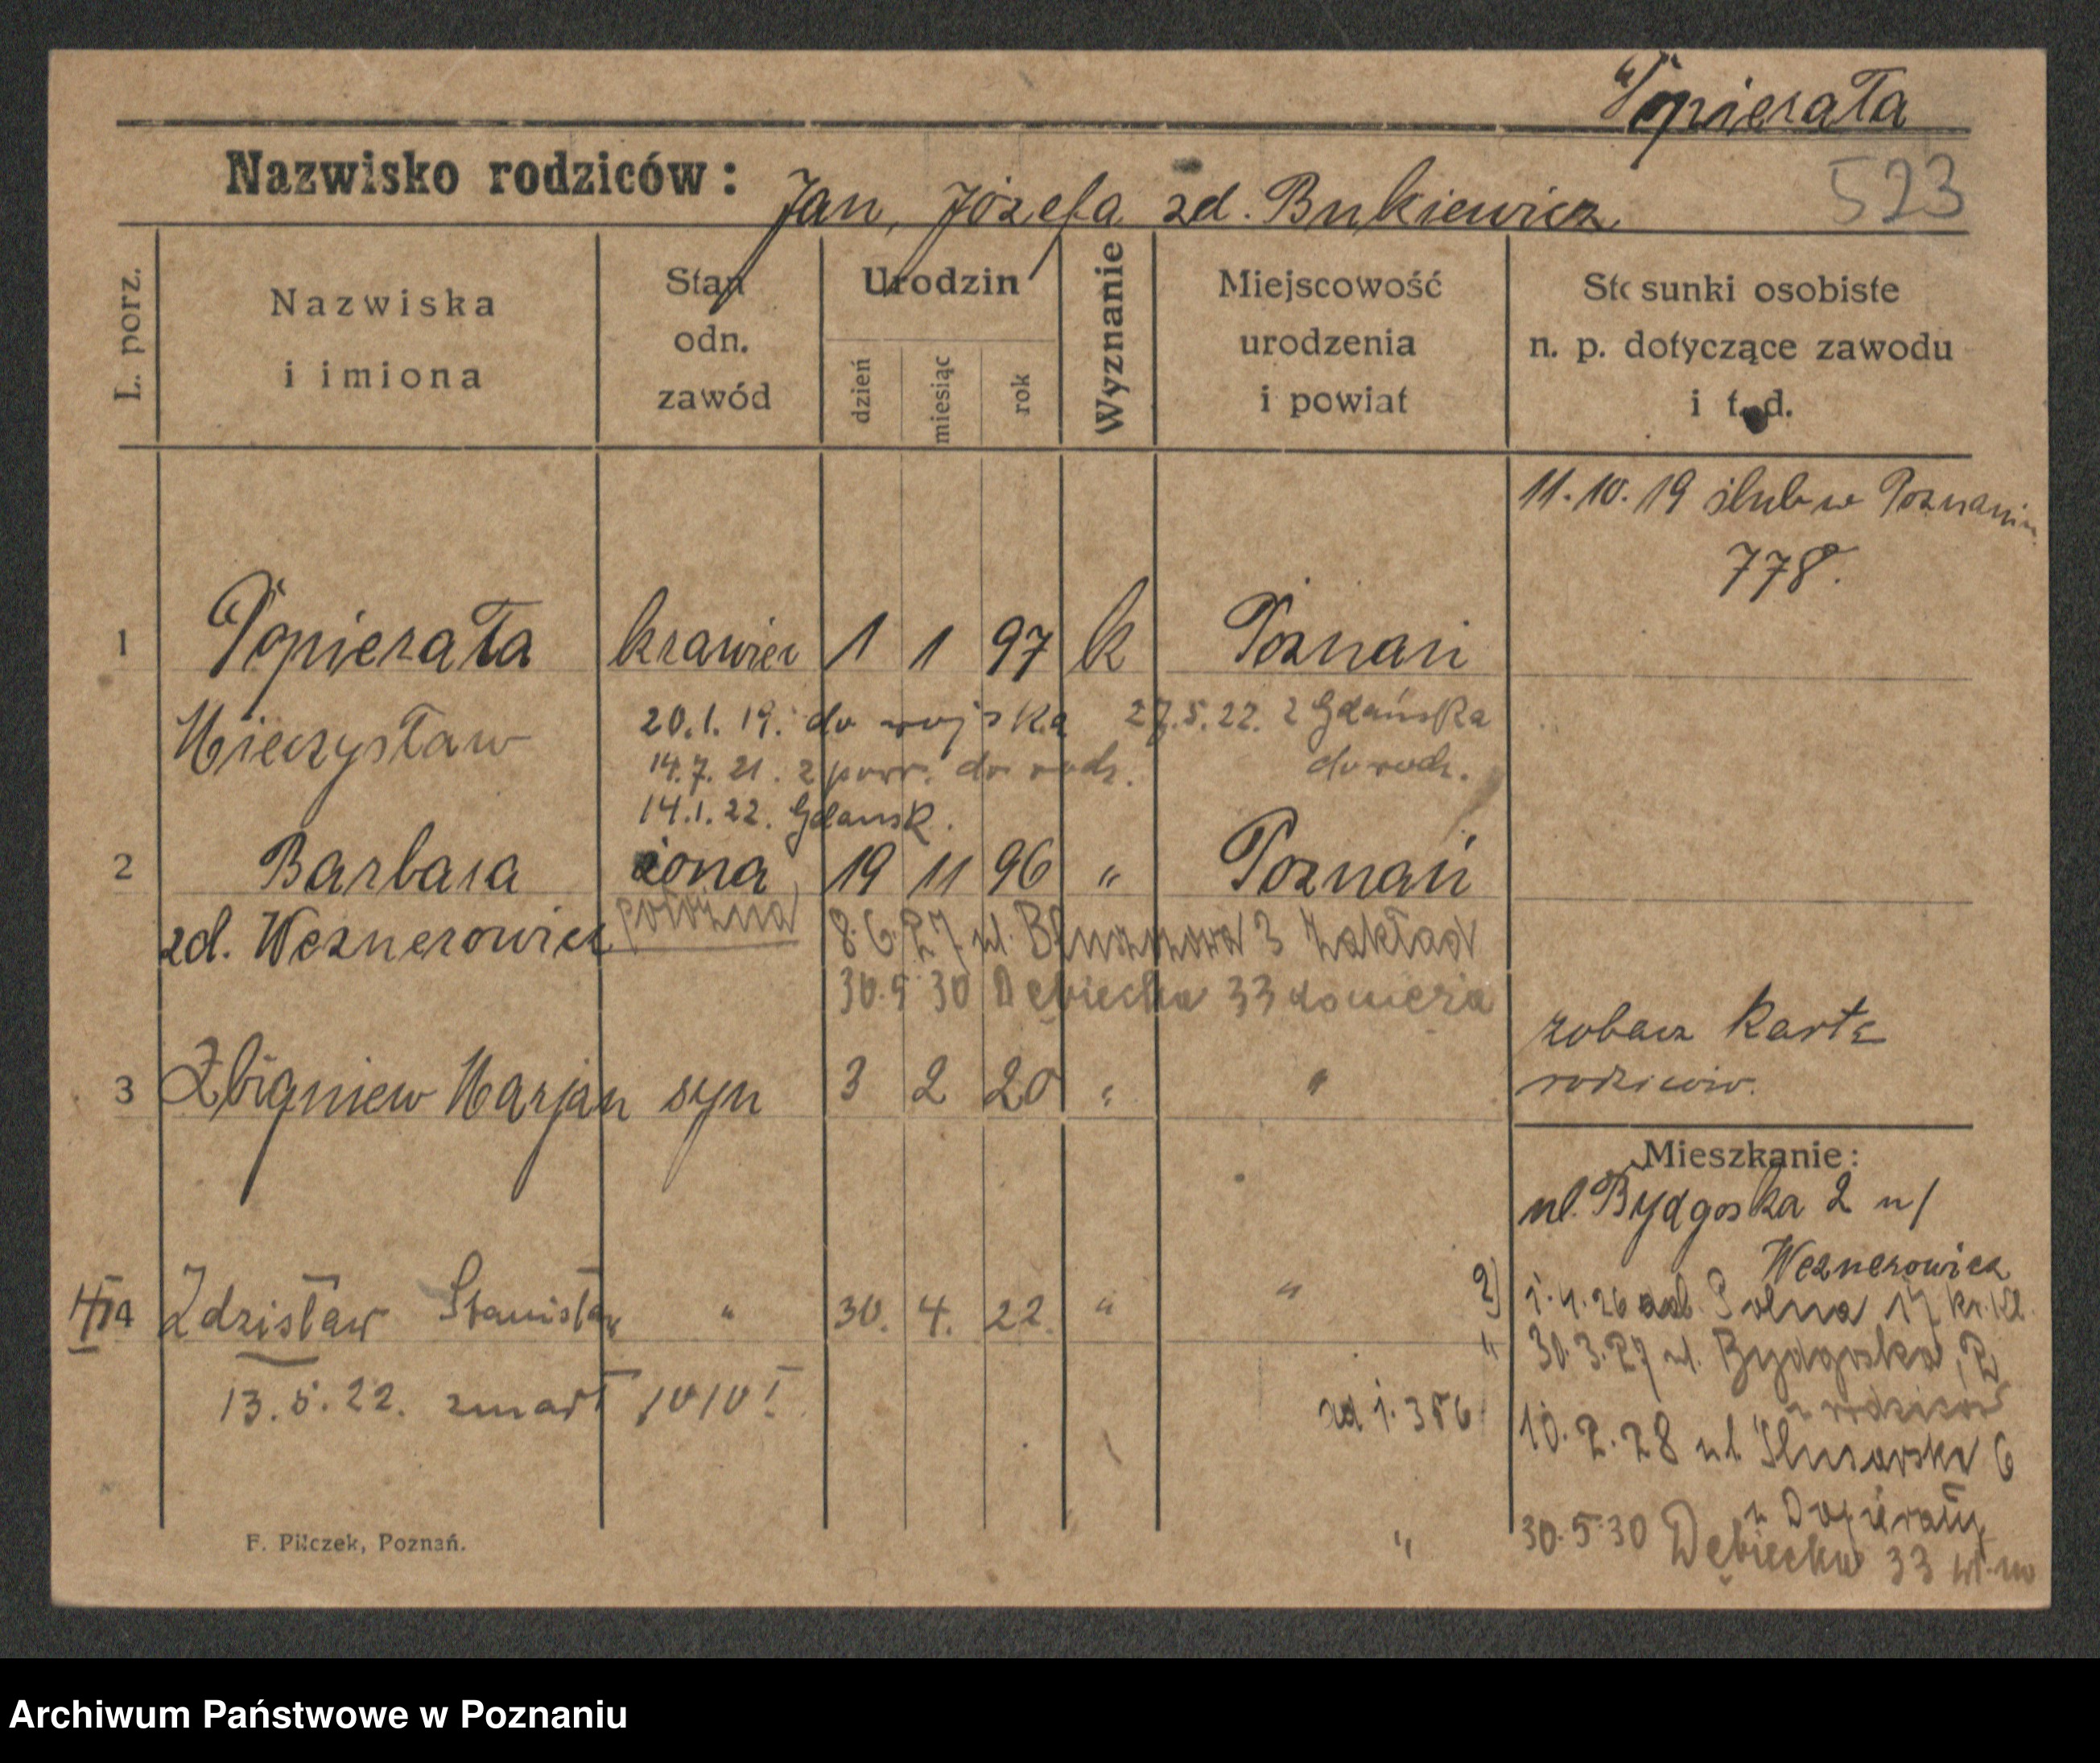 Popierała
Nazwisko rodziców: Jan, Józefa zd. Bukiewicz
523
L. porz.
Nazwiska i imiona
Stan odn. zawód
Urodzin
dzień
miesiąc
rok
Wyznanie
Miejscowość urodzenia i powiat
Stosunki osobiste n. p. dotyczące zawodu i t. d.
11. 10. 19 ślub w Poznaniu
778.
1 Popierała krawiec 1 1 97 k Poznań
Mieczysław
20.1.19. do wojska
27.5.22. z Gdańska
14.7.21. z pow. do rodz.
do rodz.
14.1.22. Gdansk.
2 Barbara żona 19 11 96 " Poznań
zd. Weznerowicz położna
8.6.27 ul. 3 Zakład
30.5 30 Dębiecka 33
zobacz kartę
rodziców.
3 Zbigniew Marjan syn 3 2 20 " "
Mieszkanie:
ul. Bydgoska 2 u/
Weznerowicz
4 Zdzisław Stanisław " 30. 4. 22. " "
2) 1.4.26 Polna 17
" 30.3.27 ul. Bydgoska 2
u rodziców
13.5.22. zmarł
356
10.2.28 ul Ślusarska 6
u Popierały
" 30.5.30 Dębiecka 33
F. Pilczek, Poznań.
Archiwum Państwowe w Poznaniu